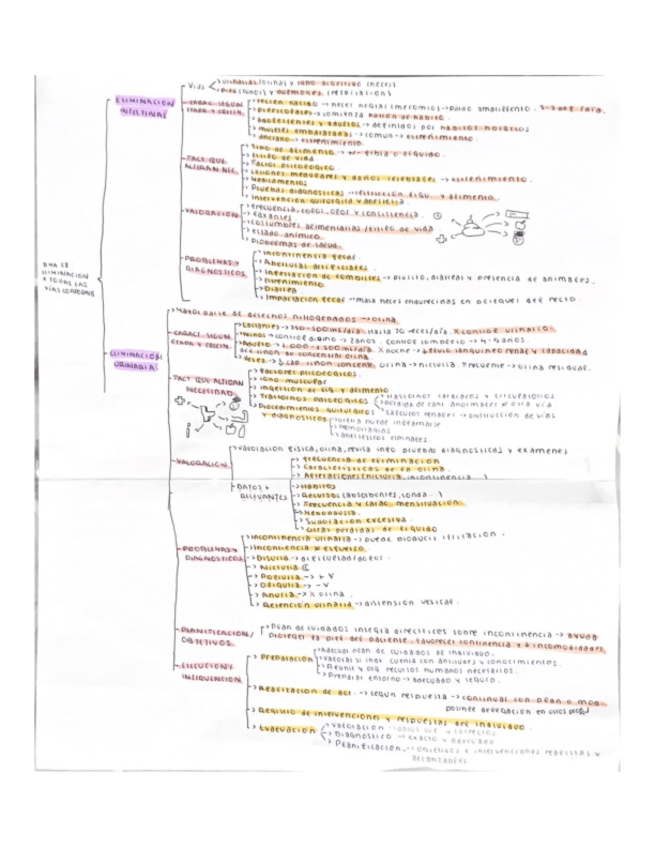 ELIMINACIÓN INTESTINAL
Vías
-> urinarias (orina) y tubo digestivo (heces)
-> piel (sudor) y pulmones (respiración)
CARACT. SEGÚN ETAPA Y CRECIM.
-> recién nacido -> heces negras (meconio) -> pardo amarillento.
-> preescolares -> comienza patrón de hábito.
-> adolescentes y adultos -> definidos por hábitos horarios
-> mujeres embarazadas -> común -> estreñimiento.
-> anciano -> estreñimiento.
FACT. QUE ALTERAN NEC.
-> tipo de alimento -> +/- fibra o líquido.
-> estilo de vida
-> factor psicológico
-> lesiones medulares y daños cerebrales -> estreñimiento.
-> medicamentos
-> pruebas diagnósticas -> restricción líqu. y alimento.
-> intervención quirúrgica y anestesia.
VALORACIÓN
-> frecuencia, color, olor y consistencia.
-> laxantes
-> costumbres alimentarias / estilo de vida
-> estado anímico.
-> problemas de salud.
PROBLEMAS Y DIAGNÓSTICOS
-> incontinencia fecal.
-> aberturas artificiales
-> infestación de lombrices -> prurito, diarreas y presencia de animales.
-> estreñimiento.
-> diarrea
-> impactación fecal -> masa heces endurecidas en pliegues del recto.
ELIMINACIÓN URINARIA
-> mayor parte de desechos nitrogenados -> orina
CARACT. SEGÚN ETAPA Y CRECIM.
-> hasta 20 veces/día. X control urinario.
-> niños -> control diurno -> 2 años. control completo -> 4-5 años.
X noche -> ↓ flujo sanguíneo renal y capacidad
del riñón de concentrar orina
-> vejez -> ↓ cap. riñón concentr. orina -> nicturia. frecuente -> orina residual.
FACT QUE ALTERAN NECESIDAD
-> factores psicológicos.
-> tono muscular
-> ingestión de líq. y alimento
-> trastornos patológicos
-> trastornos cardíacos y circulatorios
-> cálculos renales -> obstrucción de vías
-> procedimientos quirúrgicos y diagnósticos
-> uretra puede inflamarse
-> hemorragias
VALORACIÓN
-> valoración física, orina, revisa info pruebas diagnósticas y exámenes
DATOS + RELEVANTES
-> frecuencia de eliminación
-> características de la orina.
-> alteraciones (nicturia, incontinencia...)
-> hábitos
-> recursos (absorbentes, sonda...)
-> frecuencia y carac. menstruación.
-> menopausia.
-> sudoración excesiva.
-> otras pérdidas de líquido
PROBLEMAS Y DIAGNÓSTICOS
-> incontinencia urinaria -> puede producir irritación.
-> incontinencia x esfuerzo
-> disuria -> dificultad/dolor.
-> nicturia ☾
-> poliuria -> + V
-> oliguria -> - V
-> anuria -> X orina.
-> retención urinaria -> distensión vesical.
PLANIFICACIÓN/ OBJETIVOS.
-> plan de cuidados integra directrices sobre incontinencia -> ayuda
proteger la piel del paciente, favorecer continencia y ↓ incomodidades.
EJECUCIÓN/ INTERVENCIÓN
-> preparación
-> adecuar plan de cuidados al individuo.
-> valorar si inf. cuenta con aptitudes y conocimientos.
-> reunir y org. recursos humanos necesarios.
-> preparar entorno -> adecuado y seguro.
-> realización de act. -> según respuesta -> continuar con plan o mod.
-> registro de intervenciones y respuestas del individuo
-> evaluación
-> diagnóstico -> exacto y adecuado
-> planificación -> objetivos e intervenciones realistas y
alcanzables